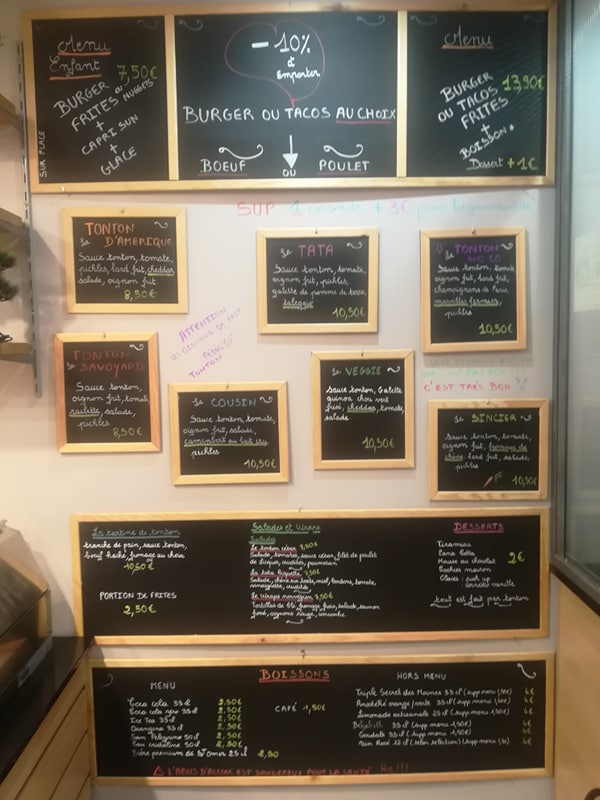 Menu
Enfant 7,50€
BURGER ou NUGGETS
FRITES
+
CAPRI SUN
+
GLACE
SUR PLACE
-10%
à
Emporter
BURGER OU TACOS AU CHOIX
BOEUF OU POULET
Menu
BURGER 13,90€
OU TACOS
FRITES
+
BOISSON
Dessert +1€
SUP 1 viande +3€ pour
TONTON
Le D'AMERIQUE
Sauce tonton, tomate,
pickles, lard fut, cheddar
salade, oignon fut.
8,50€
Le TATA
Sauce tonton, tomate,
oignon fut, pickles,
galette de pomme de terre,
taleggio
10,50€
Le TONTON
AND CO
Sauce tonton, tomate
oignon fut, lard fut,
champignons de Paris,
pickles
10,50€
ATTENTION
TONTON
TONTON
Le SAVOYARD
Sauce tonton,
oignon fut, tomate
raclette, salade,
pickles
8,50€
Le COUSIN
Sauce tonton, tomate,
oignon fut, salade,
camembert au lait cru,
pickles
10,50€
Le VEGGIE
Sauce tonton, Galette
quinoa chou vert
frisé, cheddar, tomate,
salade.
10,50€
C'EST TRÈS BON
Le SINCIER
Sauce tonton, tomate,
oignon fut, fromage de
chèvre, lard fut, salade,
pickles
10,50€
La tartine de tonton
tranche de pain, sauce tonton,
boeuf haché, fromage au choix
10,50€
PORTION DE FRITES
2,50€
Salades et Wraps
Salades
Le tonton césar 8,50€
Salade, tomates, sauce césar, filet de poulet
crudités, parmesan
Salade, chèvre sur toast, miel, lardons, tomate,
vinaigrette, crudités
Le Wraps norvégien 8,50€
Tortillas de blé, fromage frais, salade, saumon
fumé, oignons rouge, concombre
DESSERTS
Tiramisu
Pana Cotta
Mousse au chocolat 2€
Cookies maison
Glaces : push up
tout est fait par tonton
BOISSONS
MENU
Coca cola 33cl 2,50€
Coca cola zéro 33cl 2,50€
Ice Tea 33cl 2,50€
Orangina 33cl 2,50€
San Pelegrino 50cl 2,50€
Eau cristaline 50cl 2,50€
Bière premium de St Omer 25cl 2,50
CAFÉ 1,50€
HORS MENU
Triple Secret des Moines 33cl (supp menu 1,50€) 4€
Anosteké orange/verte 33cl (supp menu 1,50€) 4€
Limonade artisanale 25cl (supp menu 1,50€) 4€
33cl (supp menu 1,50€) 4€
Goudale 33cl (supp menu 1,50€) 4€
Vin Rosé 12cl (selon sélection) (supp menu 1,50) 4€
⚠ L'ABUS D'ALCOOL EST DANGEREUX POUR LA SANTÉ !!!